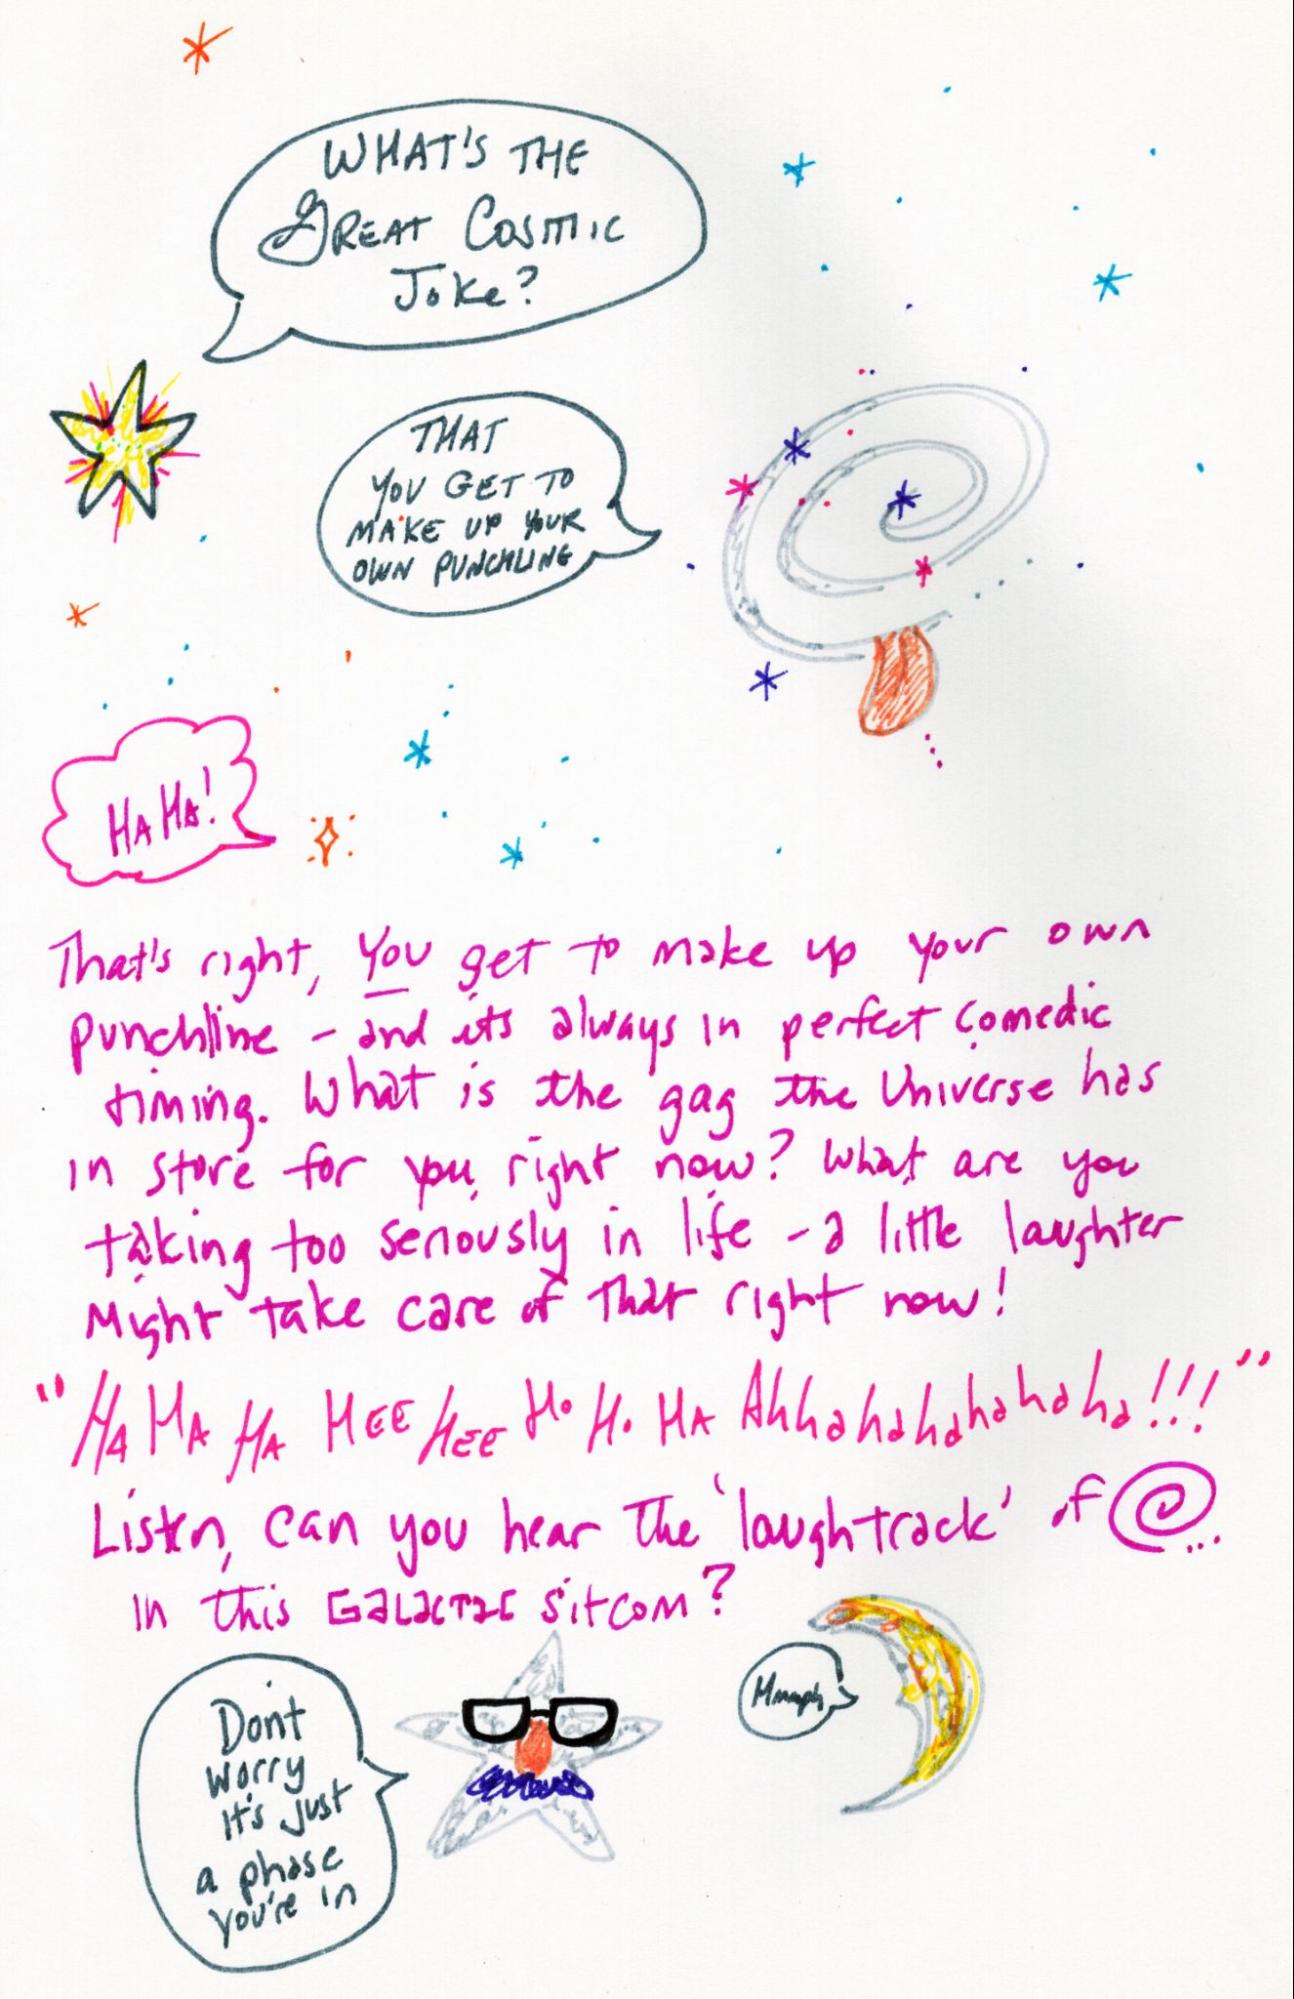 WHAT'S THE
GREAT COSMIC
JOKE?
THAT
YOU GET TO
MAKE UP YOUR
OWN PUNCHLINE
HA HA!
That's right, You get to make up your own
punchline - and its always in perfect comedic
timing. What is the gag the Universe has
in store for you right now? What are you
taking too seriously in life - a little laughter
Might take care of that right now!
"HA HA HA HEE HEE Ho Ho HA Ahhahahahahahaha!!!"
Listen, can you hear the 'laughtrack' of
...
in this GALACTIC sitcom?
Mmmph
Dont
worry
It's just
a phase
you're in